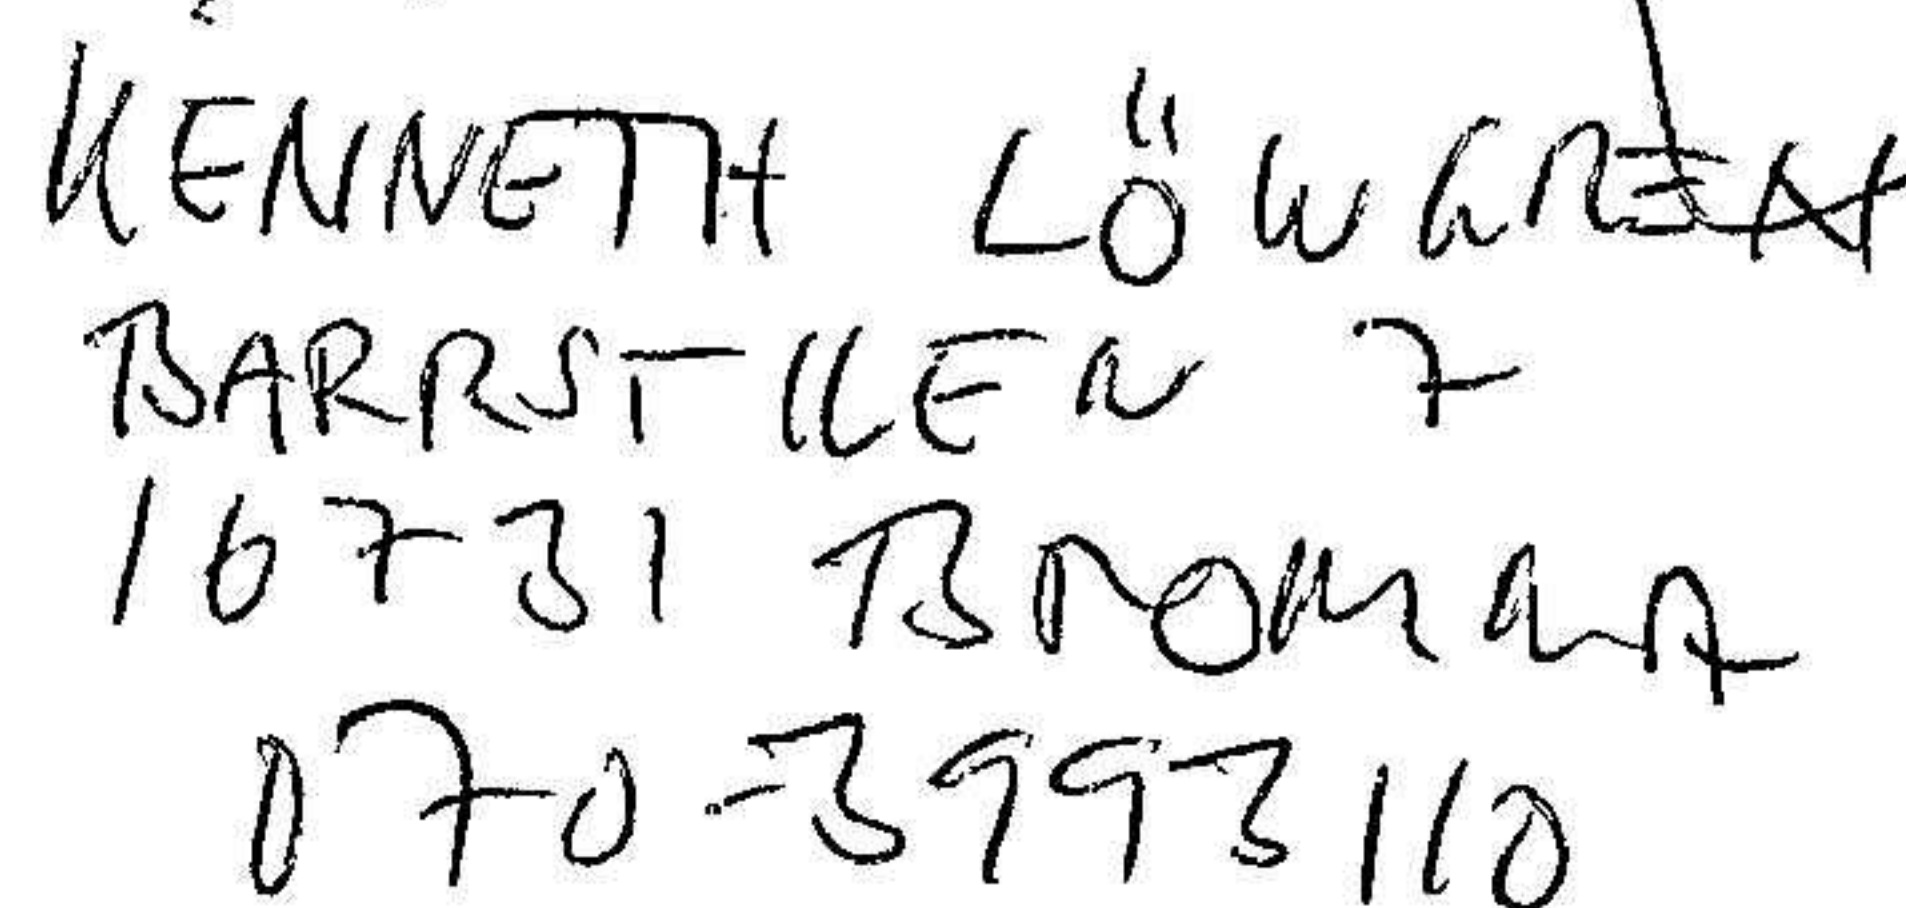 KENNETH LÖWGREN
BARRSTIGEN 7
16731 BROMMA
070-3993110